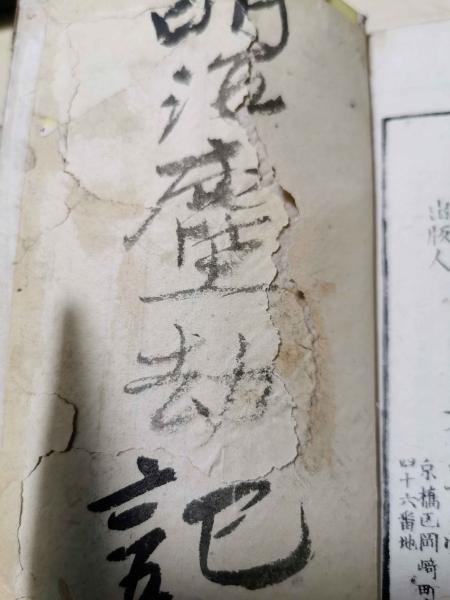 明治塵劫記
出版人
京橋区岡崎町
四十六番地